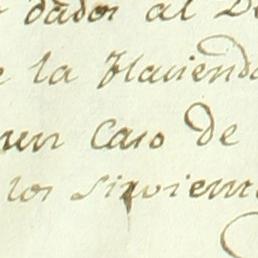 dador al De
la Hacienda
un Caso de
los sirvien